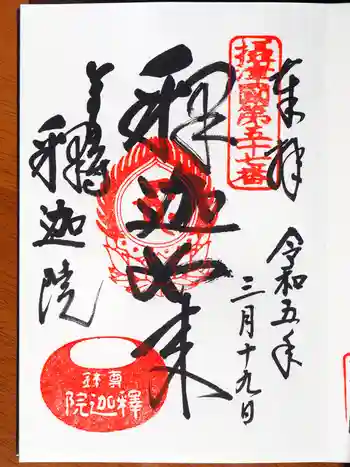 奉拝
令和五年
三月十九日
摂津國第五十七番
釋迦如来
尊鉢
釋迦院
尊鉢
釋迦院